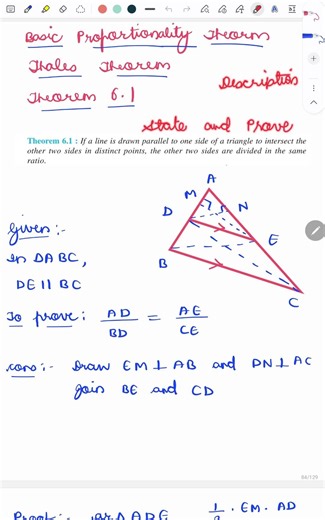 Basic Proportionality Theorm
Thales Theorem
Description
Theorem 6.1
State and Prove
Theorem 6.1 : If a line is drawn parallel to one side of a triangle to intersect the
other two sides in distinct points, the other two sides are divided in the same
ratio.
A
M
N
D
E
B
C
given:-
in ΔABC,
DE || BC
To prove: AD/BD = AE/CE
cons:- Draw EM ⊥ AB and DN ⊥ AC
join BE and CD
84/129
Proof: ar ΔADE 1/2 · EM · AD